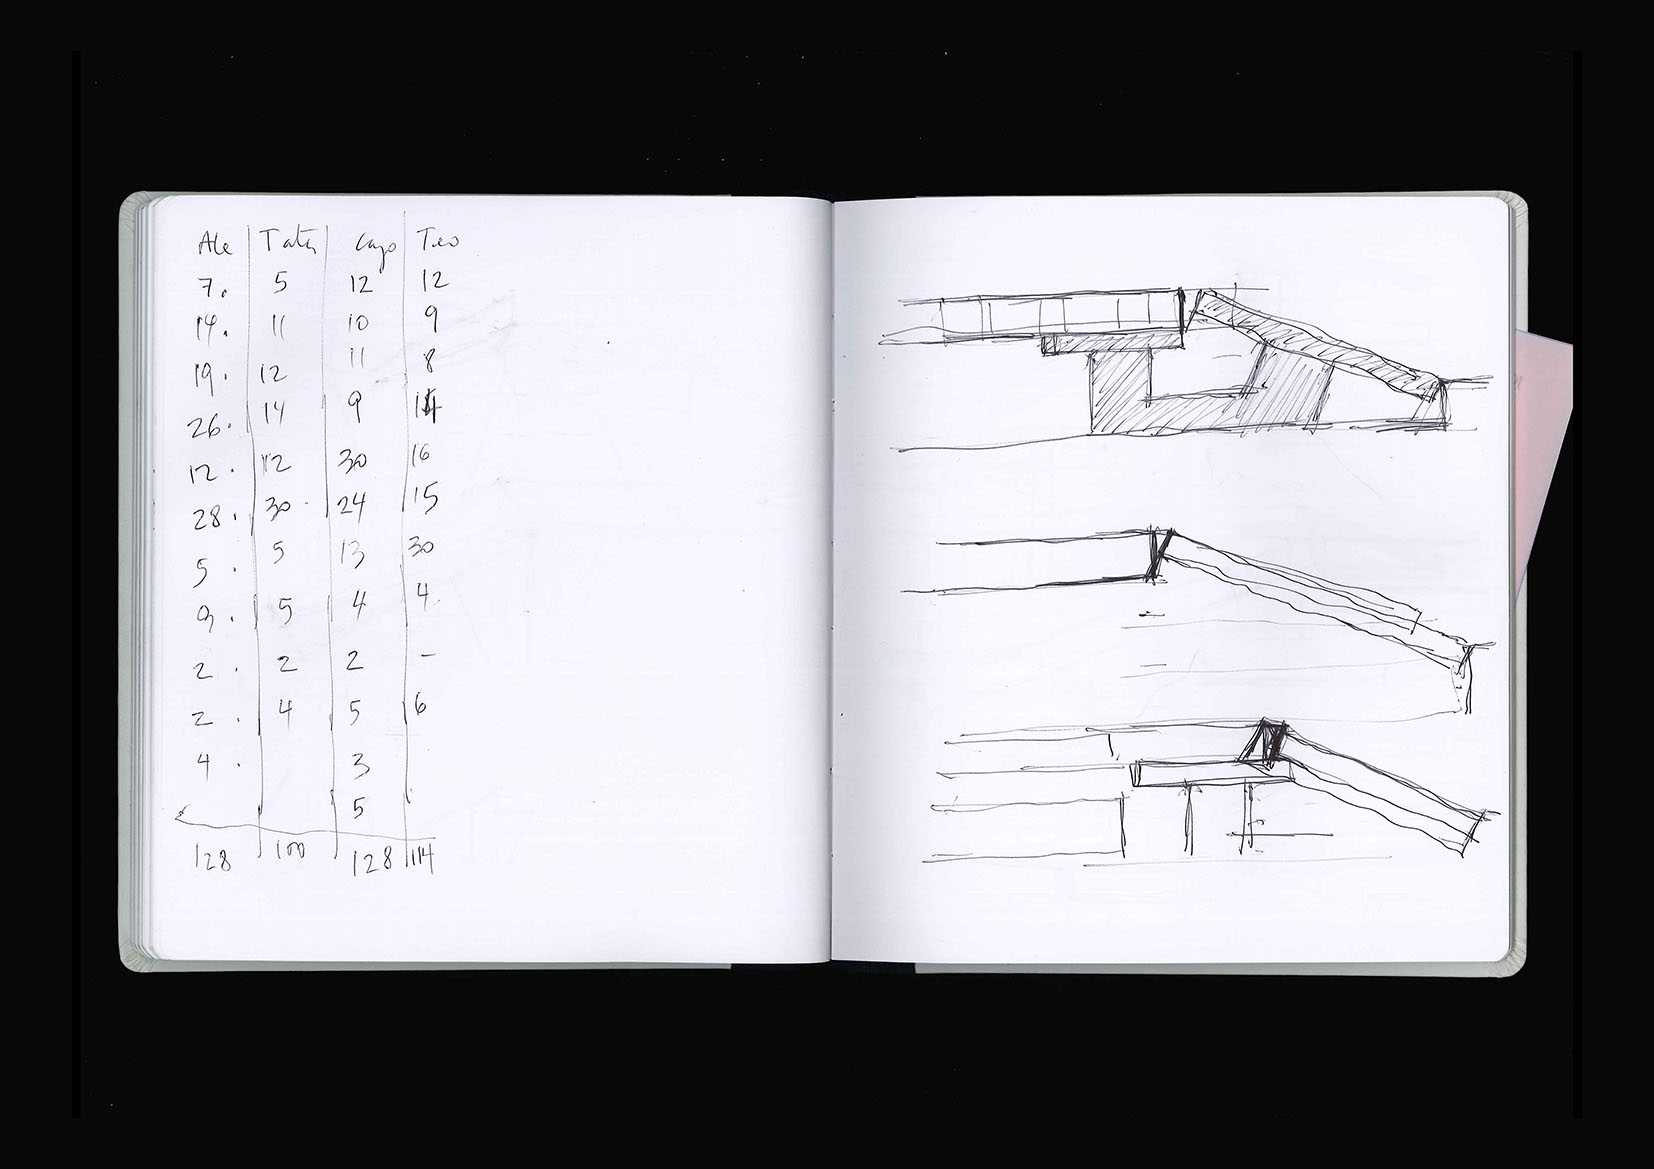 Ale Tatu Cayo Teo
7. 5 12 12
14. 11 10 9
19. 12 11 8
26. 14 9 14
12. 12 30 16
28. 30 24 15
5. 5 13 30
9. 5 4 4
2. 2 2 -
2. 4 5 6
4. 3
5
128 100 128 114